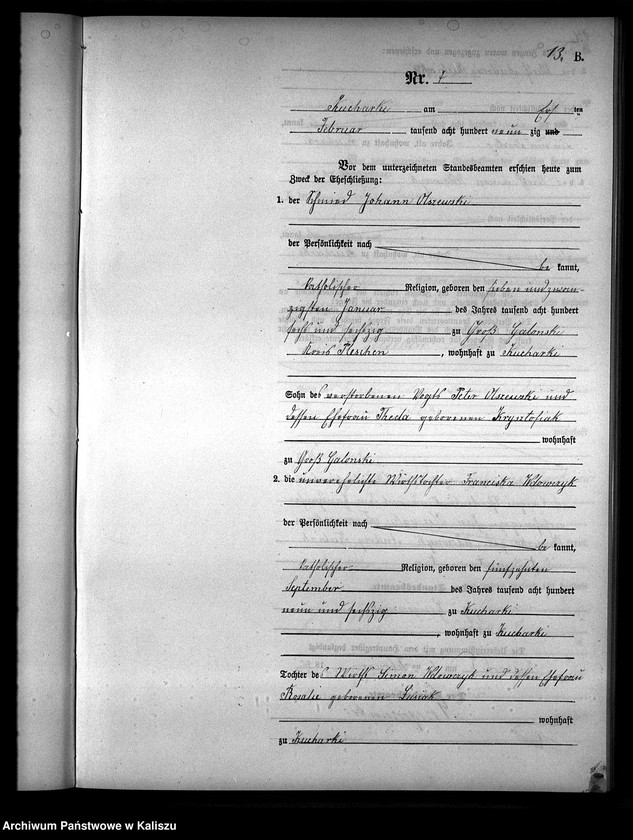 13. B.
Nr. 7
Kucharki am elf ten
Februar tausend acht hundert neun zig und
Vor dem unterzeichneten Standesbeamten erschien heute zum
Zweck der Eheschließung:
1. der Schmied Johann Olszewski
der Persönlichkeit nach
be kannt,
katholischer Religion, geboren den sieben und zwan-
zigsten Januar des Jahres tausend acht hundert
sechs und sechzig zu Groß Galonski
Kreis Pleschen, wohnhaft zu Kucharki
Sohn des verstorbenen Vogts Peter Olszewski und
dessen Ehefrau Thecla geborenen
wohnhaft
zu Groß Galonski
2. die unverehelichte Wirthstochter Franciska Wdowczyk
der Persönlichkeit nach
be kannt,
katholischer Religion, geboren den fünfzehnten
September des Jahres tausend acht hundert
neun und sechzig zu Kucharki
, wohnhaft zu Kucharki
Tochter des Wirths Simon Wdowczyk und dessen Ehefrau
Rosalie geborenen Lusiak
wohnhaft
zu Kucharki
Archiwum Państwowe w Kaliszu